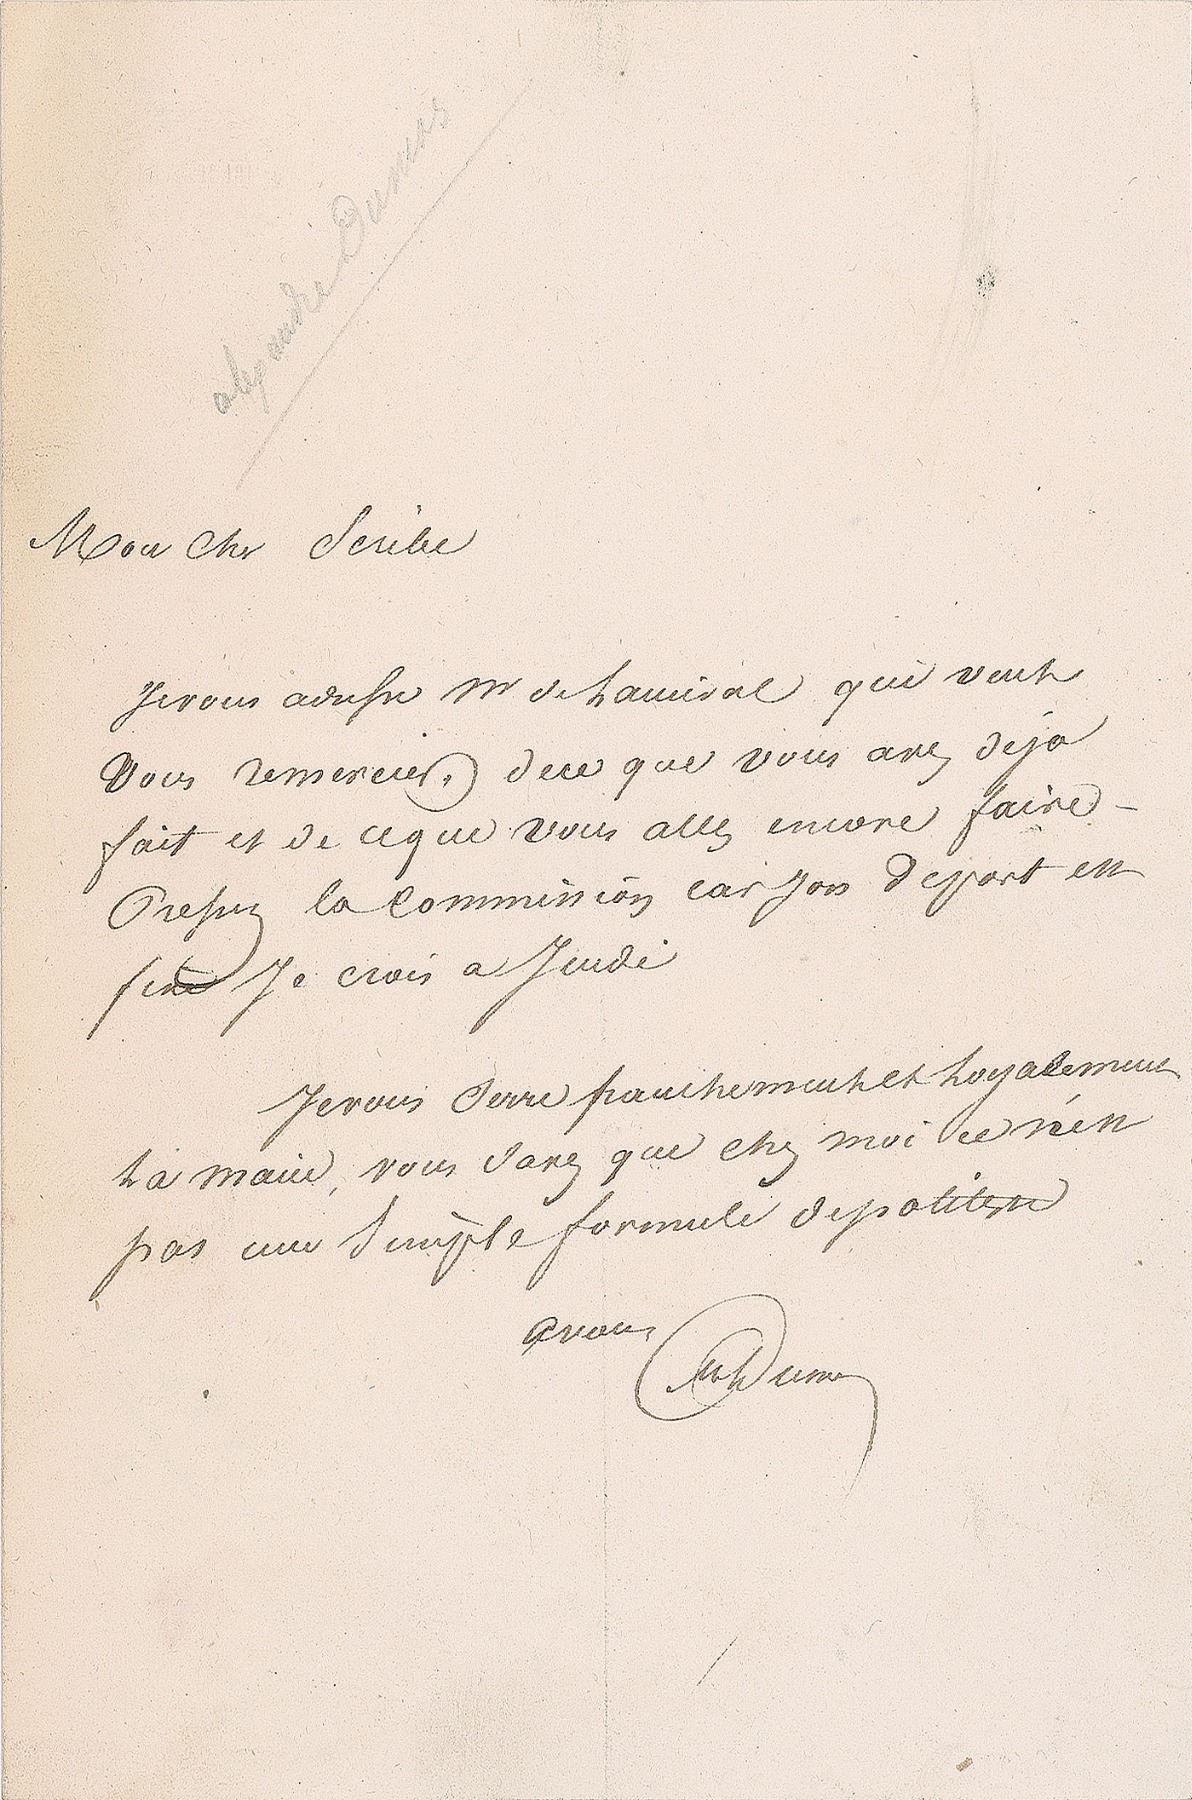 alexandre Dumas
Mon cher Scribe
Je vous adresse Mr de Lamiral qui veut
Vous remercier, de ce que vous avez déja
fait et de ce que vous allez encore faire –
Pressez la commission car son depart est
fixé Je crois a Jeudi
Je vous serre franchement et loyalement
La main, vous savez que chez moi ce n'est
pas une simple formule de politesse
a vous
Alex Dumas